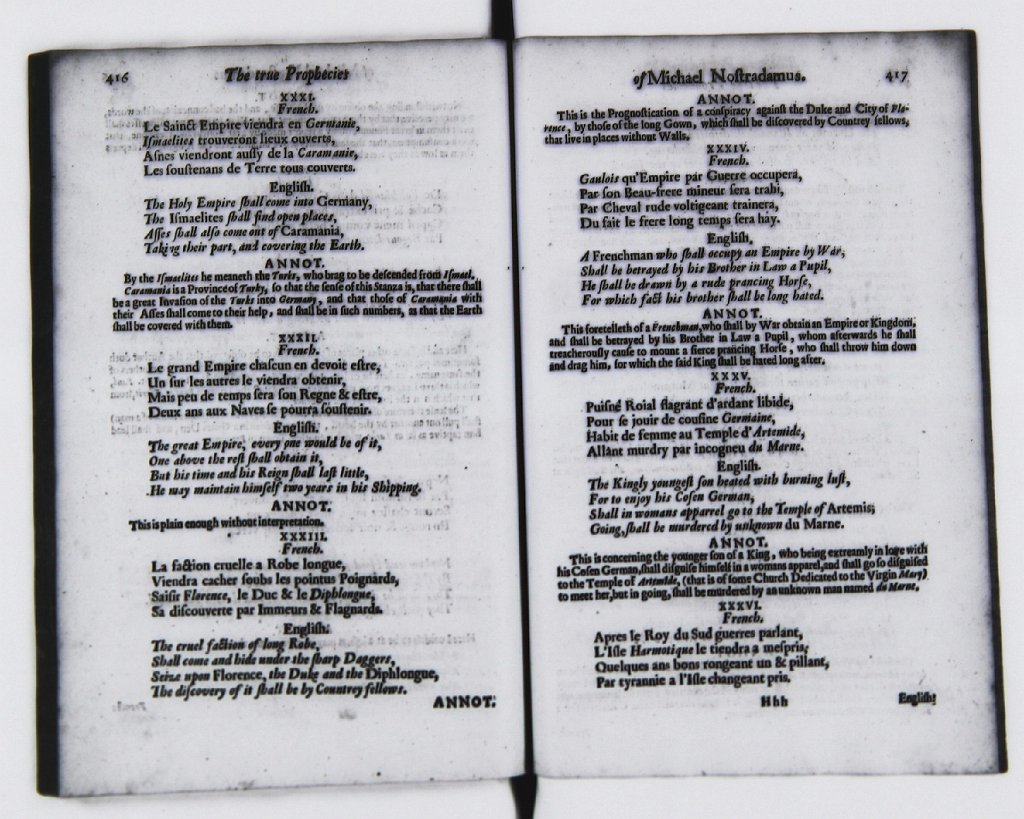 416 The true Prophecies
XXXI.
French.
Le Sainct Empire viendra en Germanie,
Iſmaelites trouveront lieux ouverts,
Aſnes viendront auſſy de la Caramanie,
Les ſouſtenans de Terre tous couverts.
Engliſh.
The Holy Empire ſhall come into Germany,
The Iſmaelites ſhall find open places,
Aſſes ſhall alſo come out of Caramania,
Taking their part, and covering the Earth.
ANNOT.
By the Iſmaelites he meaneth the Turks, who brag to be deſcended from Iſmael,
Caramania is a Province of Turky, ſo that the ſenſe of this Stanza is, that there ſhall
be a great Invaſion of the Turks into Germany, and that thoſe of Caramania with
their Aſſes ſhall come to their help, and ſhall be in ſuch numbers, as that the Earth
ſhall be covered with them.
XXXII.
French.
Le grand Empire chaſcun en devoit eſtre,
Un ſur les autres le viendra obtenir,
Mais peu de temps ſera ſon Regne & eſtre,
Deux ans aux Naves ſe pourra ſouſtenir.
Engliſh.
The great Empire, every one would be of it,
One above the reſt ſhall obtain it,
But his time and his Reign ſhall laſt little,
He may maintain himſelf two years in his Shipping.
ANNOT.
This is plain enough without interpretation.
XXXIII.
French.
La faction cruelle a Robe longue,
Viendra cacher ſoubs les pointus Poignards,
Saiſir Florence, le Duc & le Diphlongue,
Sa diſcouverte par Immeurs & Flagnards.
Engliſh.
The cruel faction of long Robe,
Shall come and hide under the ſharp Daggers,
Seize upon Florence, the Duke and the Diphlongue,
The diſcovery of it ſhall be by Countrey fellows.
ANNOT.
of Michael Noſtradamus. 417
ANNOT.
This is the Prognoſtication of a conſpiracy againſt the Duke and City of Flo-
rence, by thoſe of the long Gown, which ſhall be diſcovered by Countrey fellows,
that live in places without Walls.
XXXIV.
French.
Gaulois qu'Empire par Guerre occupera,
Par ſon Beau-frere mineur ſera trahi,
Par Cheval rude voltigeant trainera,
Du fait le frere long temps ſera hay.
Engliſh.
A Frenchman who ſhall occupy an Empire by War,
Shall be betrayed by his Brother in Law a Pupil,
He ſhall be drawn by a rude prancing Horſe,
For which fact his brother ſhall be long hated.
ANNOT.
This foretelleth of a Frenchman, who ſhall by War obtain an Empire or Kingdom,
and ſhall be betrayed by his Brother in Law a Pupil, whom afterwards he ſhall
treacherouſly cauſe to mount a fierce prancing Horſe, who ſhall throw him down
and drag him, for which the ſaid King ſhall be hated long after.
XXXV.
French.
Puiſné Roial flagrant d'ardant libide,
Pour ſe jouir de couſine Germaine,
Habit de femme au Temple d'Artemide,
Allant murdry par incogneu du Marne.
Engliſh.
The Kingly youngeſt ſon heated with burning luſt,
For to enjoy his Coſen German,
Shall in womans apparrel go to the Temple of Artemis;
Going, ſhall be murdered by unknown du Marne.
ANNOT.
This is concerning the younger ſon of a King, who being extreamly in love with
his Coſen German, ſhall diſguiſe himſelf in a womans apparel, and ſhall go ſo diſguiſed
to the Temple of Artemide, (that is of ſome Church Dedicated to the Virgin Mary)
to meet her, but in going, ſhall be murdered by an unknown man named du Marne.
XXXVI.
French.
Apres le Roy du Sud guerres parlant,
L'Iſle Harmotique le tiendra a meſpris,
Quelques ans bons rongeant un & pillant,
Par tyrannie a l'Iſle changeant pris.
Hhh Engliſh: